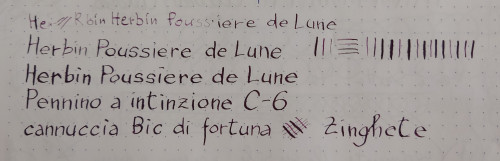 He Rbin Herbin Poussiere de Lune
Herbin Poussiere de Lune
Herbin Poussiere de Lune
Pennino a intinzione C-6
cannuccia Bic di fortuna Zinghete